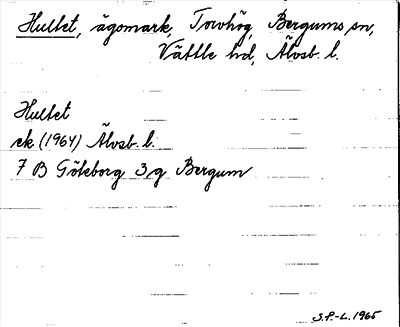 Hultet, ägomark, Torvhög, Bergums sn,
Vättle hd, Älvsb. l.
Hultet
ek (1964) Älvsb. l.
7 B Göteborg 3 g Bergum
S.P.-L. 1965